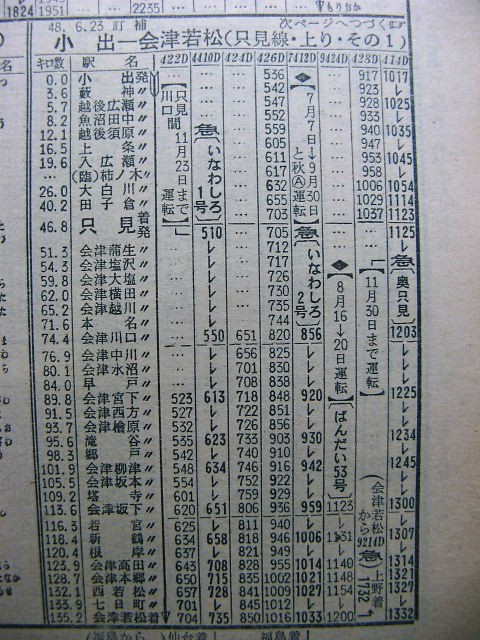 1824 1951 … 2235 …
〃もりおか
48. 6.23 訂 補
次ページへつづく
小 出―会津若松(只見線・上り・その1)
キロ数 駅 名 422D 4410D 424D 426D 7412D 9424D 428D 414D
0.0 小 出発 536 ◆ 917 1017
3.6 藪 神〃 542 923 レ
5.7 越後広瀬〃 547 928 1025
8.2 魚沼田中〃 552 933 レ
12.1 越後須原〃 559 940 1035
16.5 上 条〃 605 947 レ
19.6 入広瀬〃 611 953 1045
(…) (臨)柿ノ木〃 617 958 レ
26.0 大白川〃 632 1006 1054
40.2 田子倉〃 655 1029 1114
46.8 只 見着 703 1037 1123
発 510 705 1125
51.3 会津蒲生〃 … レ … 712 レ
54.3 会津塩沢〃 … レ … 717 レ
59.8 会津大塩〃 … レ … 726 レ
62.0 会津横田〃 … レ … 730 レ
65.2 会津越川〃 … レ … 735 レ
71.6 本 名〃 … レ … 744 レ
74.4 会津川口〃 … 550 651 820 856 1203
76.9 会津中川〃 … レ 656 825 レ レ
80.1 会津水沼〃 … レ 701 830 レ レ
84.0 早 戸〃 … レ 708 838 レ レ
89.8 会津宮下〃 523 613 718 848 920 1225
91.5 会津西方〃 527 レ 722 851 レ レ
93.7 会津檜原〃 532 レ 726 856 レ レ
95.6 滝 谷〃 535 623 733 903 930 1234
98.3 郷 戸〃 542 レ 740 910 レ レ
101.9 会津柳津〃 548 634 746 916 942 1245
105.5 会津坂本〃 554 レ 752 922 レ レ
109.2 塔 寺〃 601 レ 759 929 レ レ
113.6 会津坂下〃 620 651 806 936 959 1123 1300
116.3 若 宮〃 625 レ 811 940 レ レ レ
118.4 新 鶴〃 634 658 818 946 1006 1131 1307
120.4 根 岸〃 637 レ 821 949 レ レ レ
123.9 会津高田〃 643 708 828 955 1014 1140 1314
128.7 会津本郷〃 650 715 835 1002 1021 1148 1321
132.1 西若松〃 657 728 841 1009 1027 1154 1327
133.9 七日町〃 701 レ 845 1012 レ レ レ
135.2 会津若松着 704 735 850 1016 1033 1200 1332
【只見―川口間 11月23日まで運転】
急 いなわしろ1号
【7月7日→9月30日と秋Ⓐ運転】
急 いなわしろ2号
◆【8月16→20日運転】
ばんだい53号
【11月30日まで運転】
急 奥只見
(会津若松から9214D 急 上野着1732)
仙台着
福島着